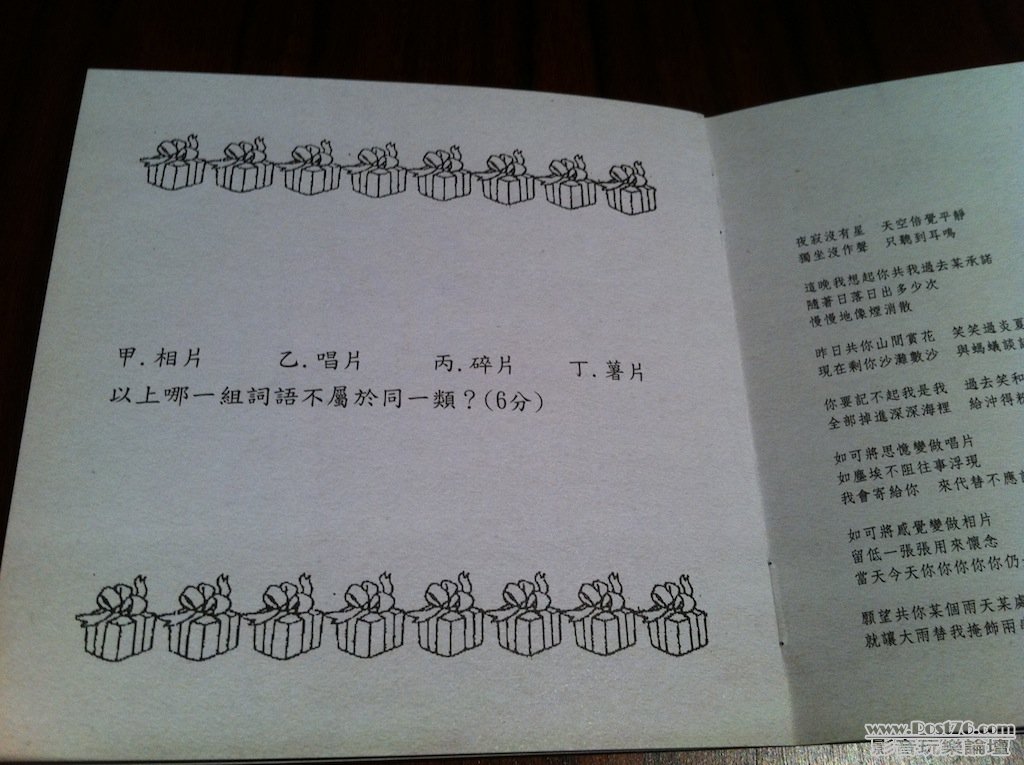 甲.相片　乙.唱片　丙.碎片　丁.薯片
以上哪一組詞語不屬於同一類？(6分)
夜寂沒有星　天空倍覺平靜
獨坐沒作聲　只聽到耳鳴
這晚我想起你共我過去某承諾
隨著日落日出多少次
慢慢地像煙消散
昨日共你山間賞花　笑笑過炎夏
現在剩你沙灘數沙　與螞蟻談
你要記不起我是我　過去笑和
全部掉進深深海裡　給沖得
如可將思憶變做唱片
如塵埃不阻往事浮現
我會寄給你　來代替不應
如可將感覺變做相片
留低一張張用來懷念
當天今天你你你你你仍
願望共你某個雨天某處
就讓大雨替我掩飾兩
www.Post76.com
影音玩樂論壇